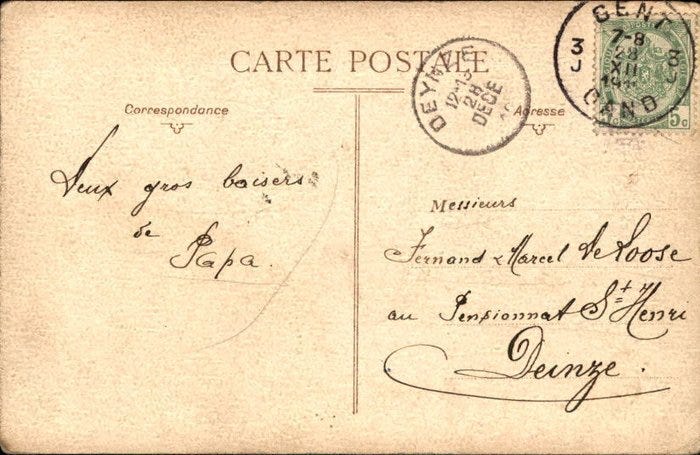 CARTE POSTALE
Correspondance
Deux gros baisers
de
Papa.
Adresse
Messieurs
Fernand & Marcel De Loose
au Pensionnat St Henri
Deinze.
DEYNZE
12-13
28
DECE
GENT
7-8
28
XII
3
J
3
J
GAND
5c